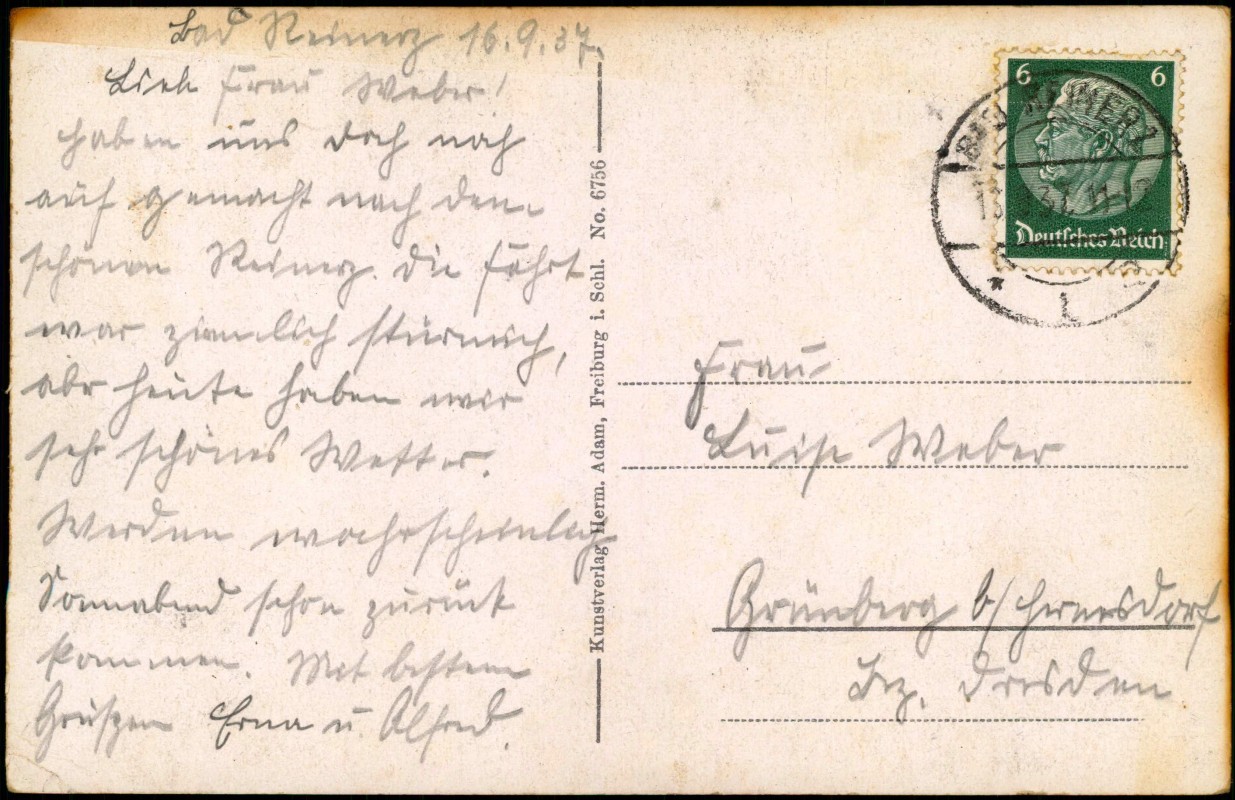 Bad Reinerz 16.9.37.
Liebe Frau Weber!
haben uns doch noch
auf gemacht nach dem
schönen Reinerz. die Fahrt
war ziemlich stürmisch,
aber heute haben wir
sehr schönes Wetter.
Werden wahrscheinlich
Sonnabend schon zurück
kommen. Mit besten
Grüßen Erna u. Alfred.
Kunstverlag Herm. Adam, Freiburg i. Schl. No. 6756
6 6
Deutsches Reich
BAD REINERZ
1
Frau
Luise Weber
Grünberg b/Hermsdorf
Bez. Dresden